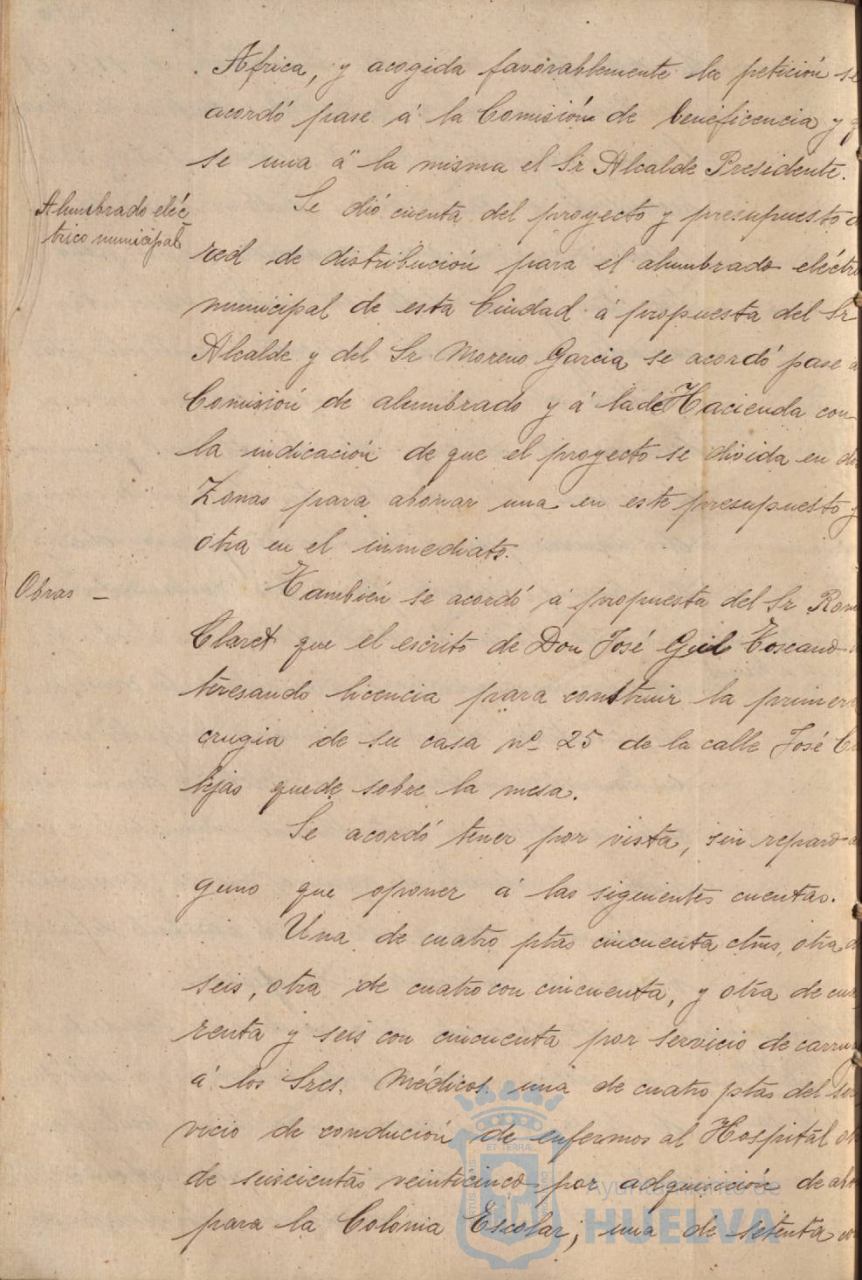 Africa, y acogida favorablemente la petición se
acordó pase á la Comisión de beneficencia y q
se una á la misma el Sr Alcalde Presidente.
Alumbrado eléc
trico municipal
Se dió cuenta del proyecto y presupuesto d
red de distribución para el alumbrado eléctri
municipal de esta Ciudad á propuesta del Sr
Alcalde y del Sr Moreno Garcia se acordó pase a
Comisión de alumbrado y á la de Hacienda con
la indicación de que el proyecto se divida en do
Zonas para abonar una en este presupuesto y
otra en el inmediato.
Obras –
También se acordó á propuesta del Sr Rom
Claret que el escrito de Don José Guil Toscano
teresando licencia para construir la primera
crugia de su casa nº 25 de la calle José Ca
lejas quede sobre la mesa.
Se acordó tener por vista, sin reparo a
guno que oponer á las siguientes cuentas.
Una de cuatro ptas cincuenta ctms, otra d
seis, otra de cuatro con cincuenta, y otra de cua
renta y seis con cincuenta por servicio de carrua
á los Sres. Médicos, una de cuatro ptas del ser
vicio de condución de enfermos al Hospital ot
de seiscientas veinticinco por adquisición de
para la Colonia Escolar; una de setenta
Ayuntamiento de
HUELVA